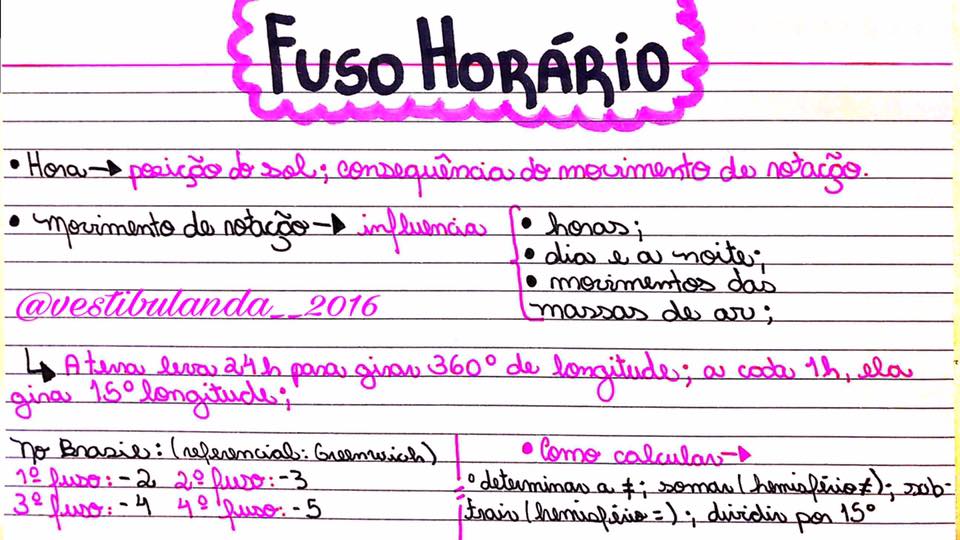 FUSO HORÁRIO
• Hora → posição do sol; consequência do movimento de rotação.
• Movimento de rotação → influencia
• horas;
• dia e a noite;
• movimentos das
massas de ar;
@vestibulanda__2016
↳ A terra leva 24h para girar 360° de longitude; a cada 1h, ela
gira 15° longitude;
No Brasil: (referencial: Greenwich)
1º fuso: -2 2º fuso: -3
3º fuso: -4 4º fuso: -5
• Como calcular →
° determinar a ≠; somar (hemisfério ≠); sub-
trair (hemisfério =); dividir por 15°